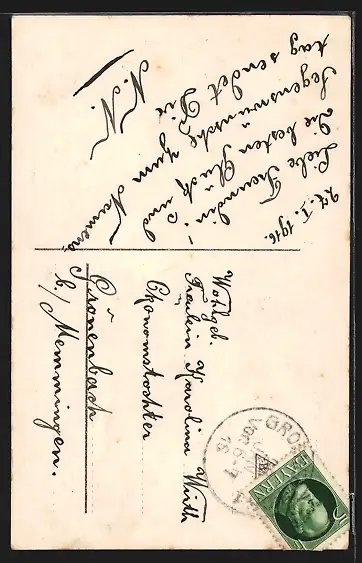 27. I. 1916.
Liebe Freundin!
Die besten Glück und
Segenswünsche zum Namens
tag sendet Dir
N. N.
Wohlgeb.
Fräulein Karolina Wirth
Ökonomstochter
Grönenbach
b/ Memmingen.
BAYERN
5